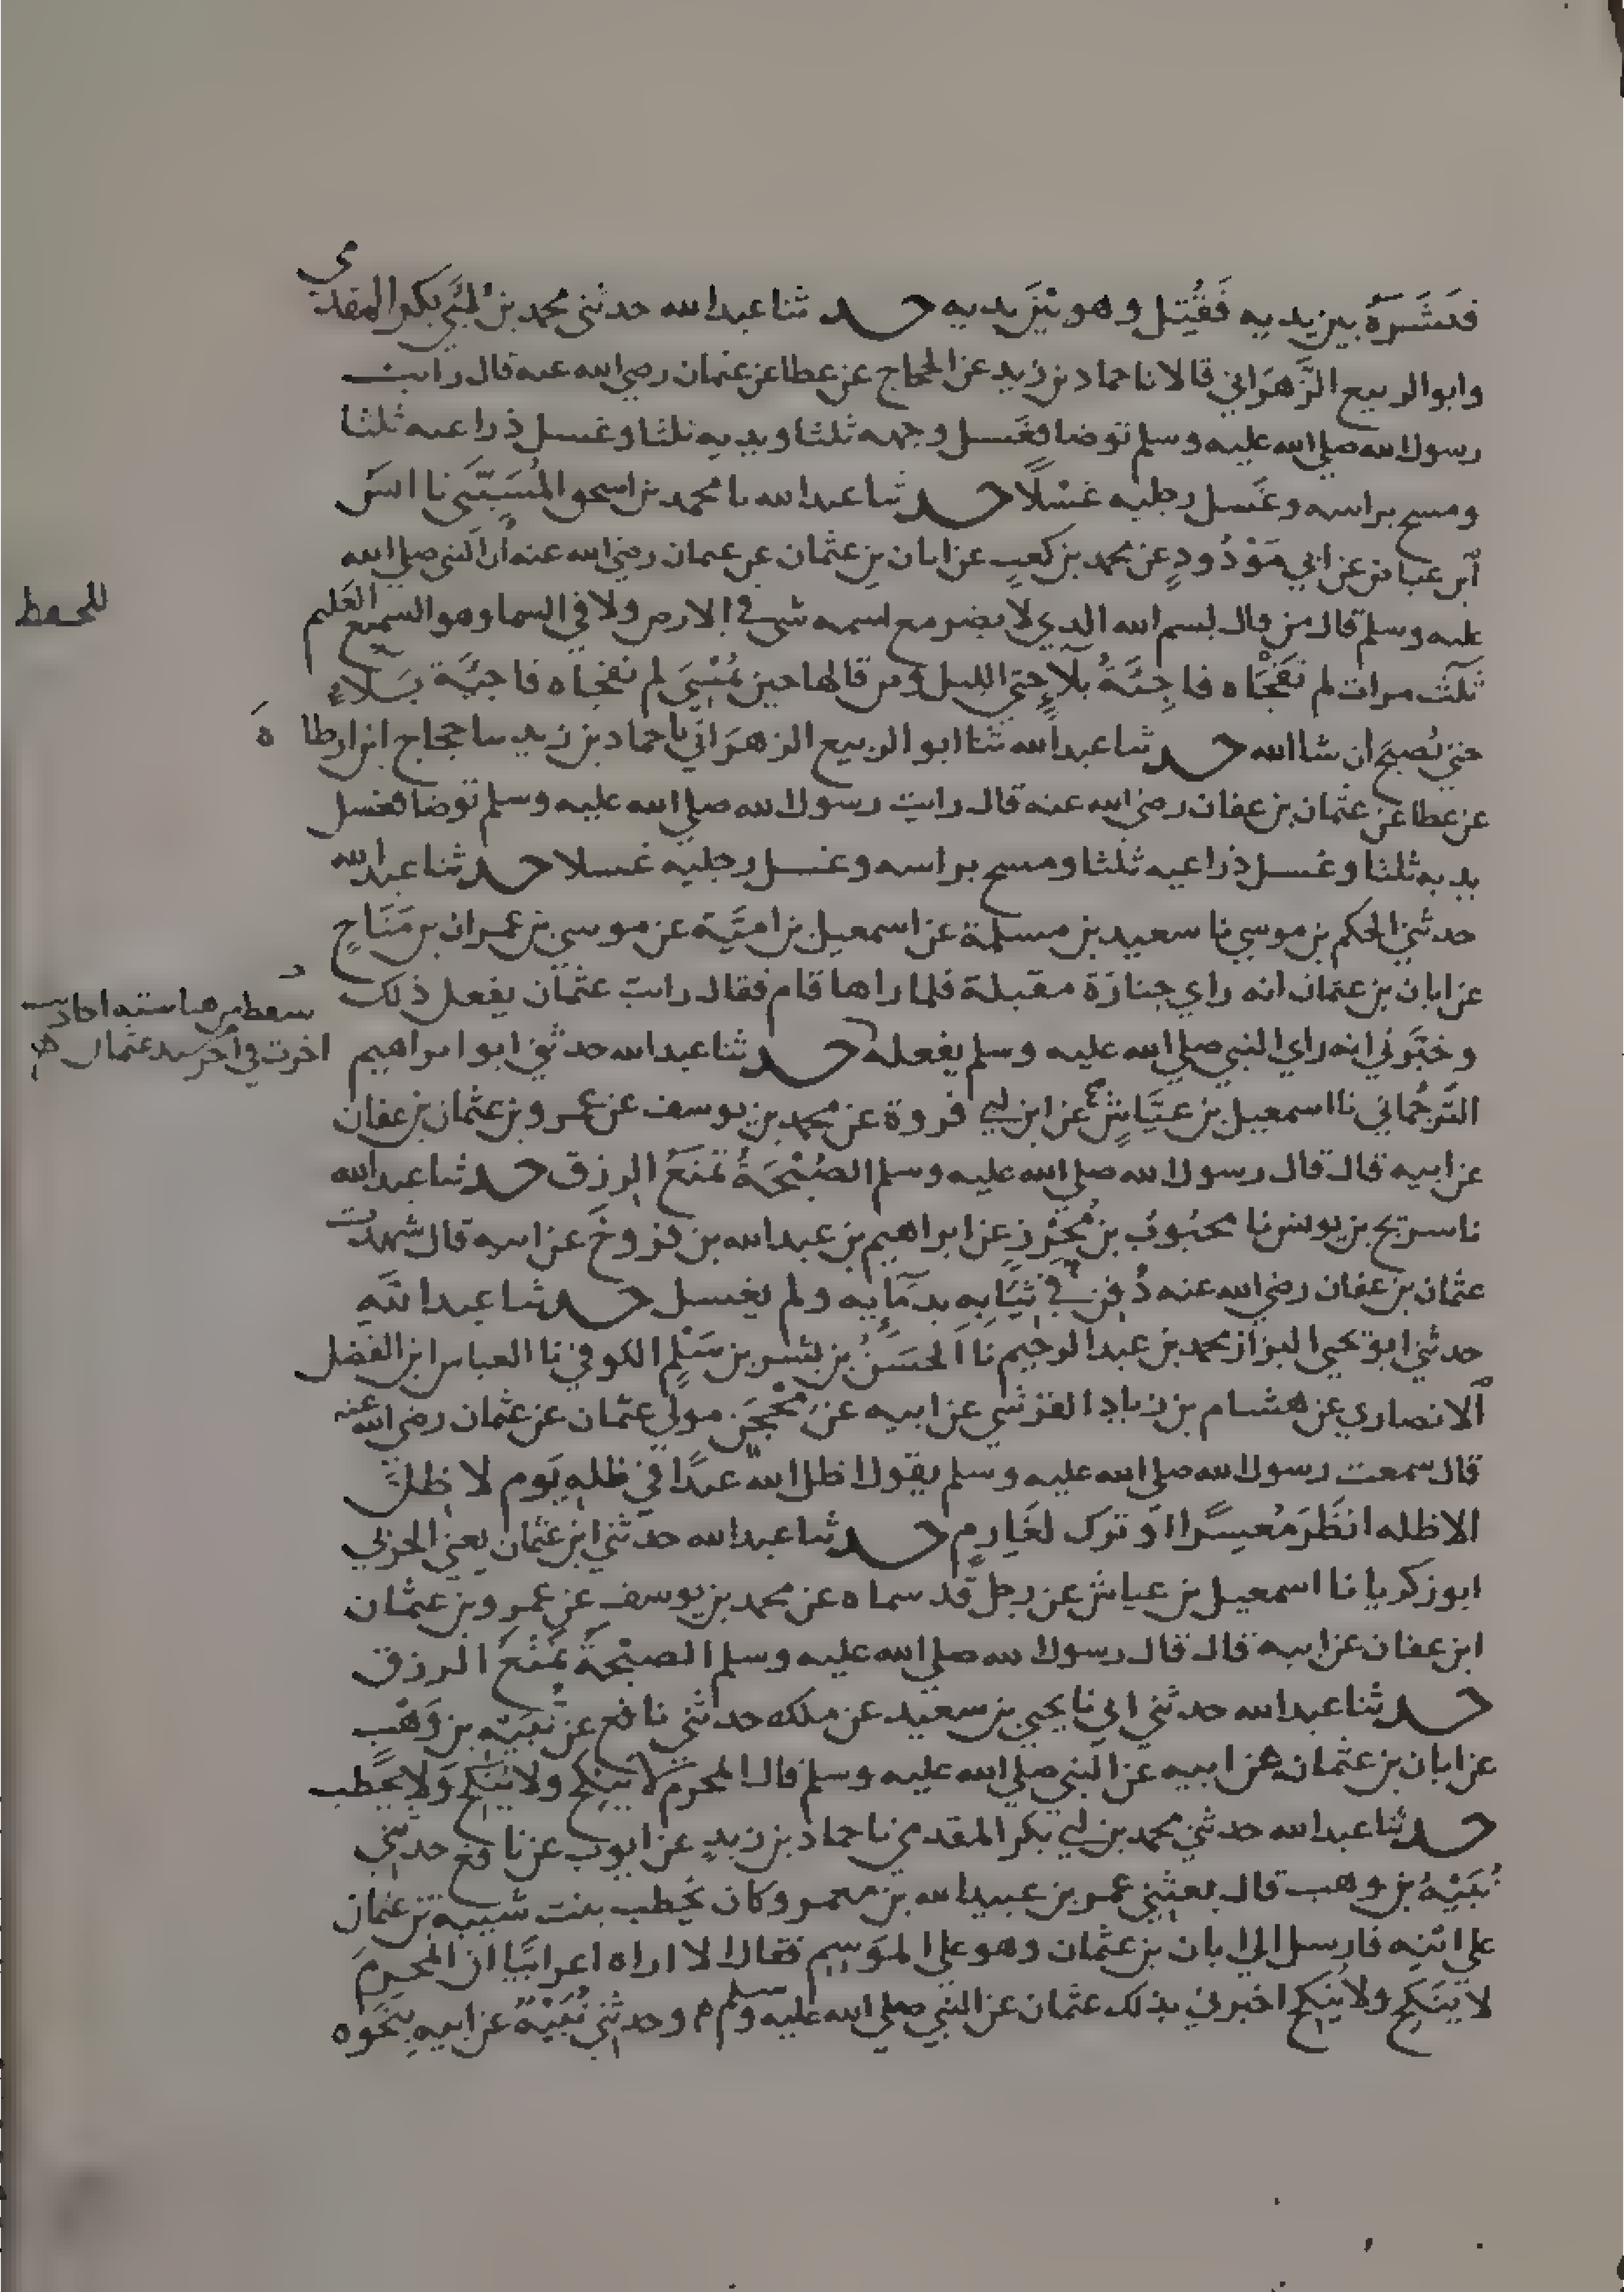 فنشره بين يديه فقتل وهو بين يديه حد ثنا عبدالله حدثنى محمد بن ابي بكر المقدمي
وابو الربيع الزهراني قالا نا حماد بن زيد عن الحجاج عن عطا عن عثمان رضي الله عنه قال رايت
رسول الله صلي الله عليه وسلم توضا فغسل وجهه ثلثا ويديه ثلثا وغسل ذراعيه ثلثا
ومسح براسه وغسل رجليه غسلا حد ثنا عبدالله نا محمد بن اسحق المسيبي نا انس
ابن عياض عن ابي مودود عن محمد بن كعب عن ابان بن عثمان عن عثمان رضي الله عنه ان النبي صلي الله
عليه وسلم قال من قال بسم الله الذي لا يضر مع اسمه شي في الارض ولا في السما وهو السميع العليم
للحفظ
ثلث مرات لم تفجاه فاجئة بلاء حتي الليل ومن قالها حين يمسي لم تفجاه فاجئة بلاء
حتي يصبح ان شا الله حد ثنا عبدالله ثنا ابو الربيع الزهراني نا حماد بن زيد نا حجاج ابن ارطاة
عن عطا عن عثمان بن عفان رضي الله عنه قال رايت رسول الله صلي الله عليه وسلم توضا فغسل
يديه ثلثا وغسل ذراعيه ثلثا ومسح براسه وغسل رجليه غسلا حد ثنا عبدالله
حدثني الحكم بن موسي نا سعيد بن مسلمة عن اسمعيل بن امية عن موسي بن عمران بن مناح
عن ابان بن عثمان انه راي جنازة مقبلة فلما راها قام فقال رايت عثمان يفعل ذلك
سقط من هنا ستة احاديث
اخرت في اخر مسند عثمان
وخبرني انه راي النبي صلي الله عليه وسلم يفعله حد ثنا عبدالله حدثني ابو ابراهيم
الترجماني نا اسمعيل بن عياش عن ابن ابي فروة عن محمد بن يوسف عن عمرو بن عثمان بن عفان
عن ابيه قال قال رسول الله صلي الله عليه وسلم الصبحة تمنع الرزق حد ثنا عبدالله
نا سريج بن يونس نا محبوب بن محرز عن ابراهيم بن عبدالله بن فروخ عن ابيه قال شهدت
عثمان بن عفان رضي الله عنه دفن في ثيابه بدمايه ولم يغسل حد ثنا عبدالله
حدثني ابو يحيي البزاز محمد بن عبد الرحيم نا الحسن بن بشر بن سلم الكوفي نا العباس ابن الفضل
الانصاري عن هشام بن زياد القرشي عن ابيه عن محجن مولي عثمان عن عثمان رضي الله عنه
قال سمعت رسول الله صلي الله عليه وسلم يقول اظل الله عبدا في ظله يوم لا ظل
الا ظله انظر معسرا او ترك لغارم حد ثنا عبدالله حدثني ابن عثمان يعني الحربي
ابو زكريا نا اسمعيل بن عياش عن رجل قد سماه عن محمد بن يوسف عن عمرو بن عثمان
ابن عفان عن ابيه قال قال رسول الله صلي الله عليه وسلم الصبحة تمنع الرزق
حد ثنا عبدالله حدثني ابي نا يحيي بن سعيد عن ملك حدثني نافع عن نبيه بن وهب
عن ابان بن عثمان عن ابيه عن النبي صلي الله عليه وسلم قال المحرم لا ينكح ولا ينكح ولا يخطب
حد ثنا عبدالله حدثني محمد بن ابي بكر المقدمي نا حماد بن زيد عن ايوب عن نافع حدثني
نبيه بن وهب قال بعثني عمر بن عبيدالله بن معمر وكان يخطب بنت شيبة بن عثمان
علي ابنه فارسل الي ابان بن عثمان وهو علي الموسم فقال الا اراه اعرابيا ان المحرم
لا ينكح ولا ينكح اخبرني بذلك عثمان عن النبي صلي الله عليه وسلم وحدثني نبيه عن ابيه بنحوه